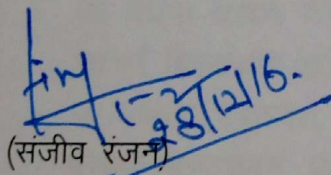 28/12/16.
(संजीव रंजन)